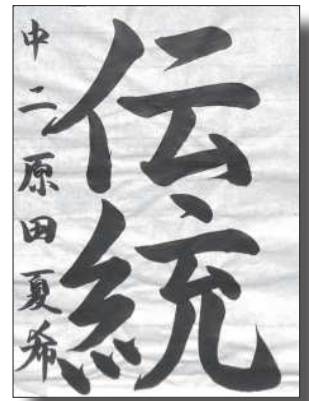 伝統
中二原田夏希